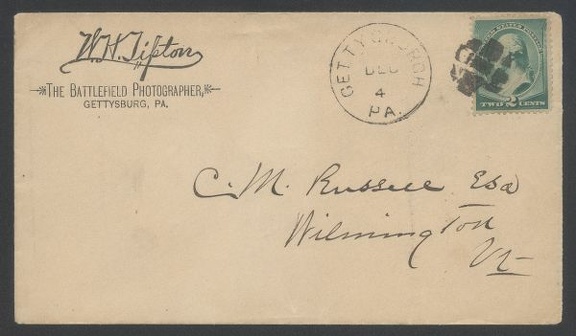 W.H. Tipton
THE BATTLEFIELD PHOTOGRAPHER,
GETTYSBURG, PA.
GETTYSBURGH
DEC
4
PA.
UNITED STATES POSTAGE
TWO 2 CENTS
C. M. Russell Esq
Wilmington
Vt